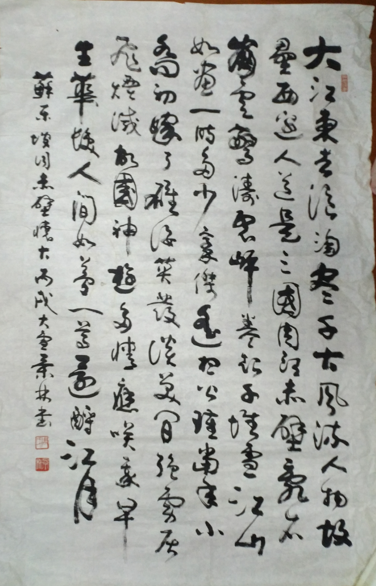 大江東去浪淘盡千古風流人物故
壘西邊人道是三國周郎赤壁亂石
崩雲驚濤裂岸卷起千堆雪江山
如畫一時多少豪傑遙想公瑾當年小
喬初嫁了雄姿英發談笑間強虜灰
飛煙滅故國神遊多情應笑我早
生華髮人間如夢一尊還酹江月
蘇東坡詞赤壁懷古丙戌書